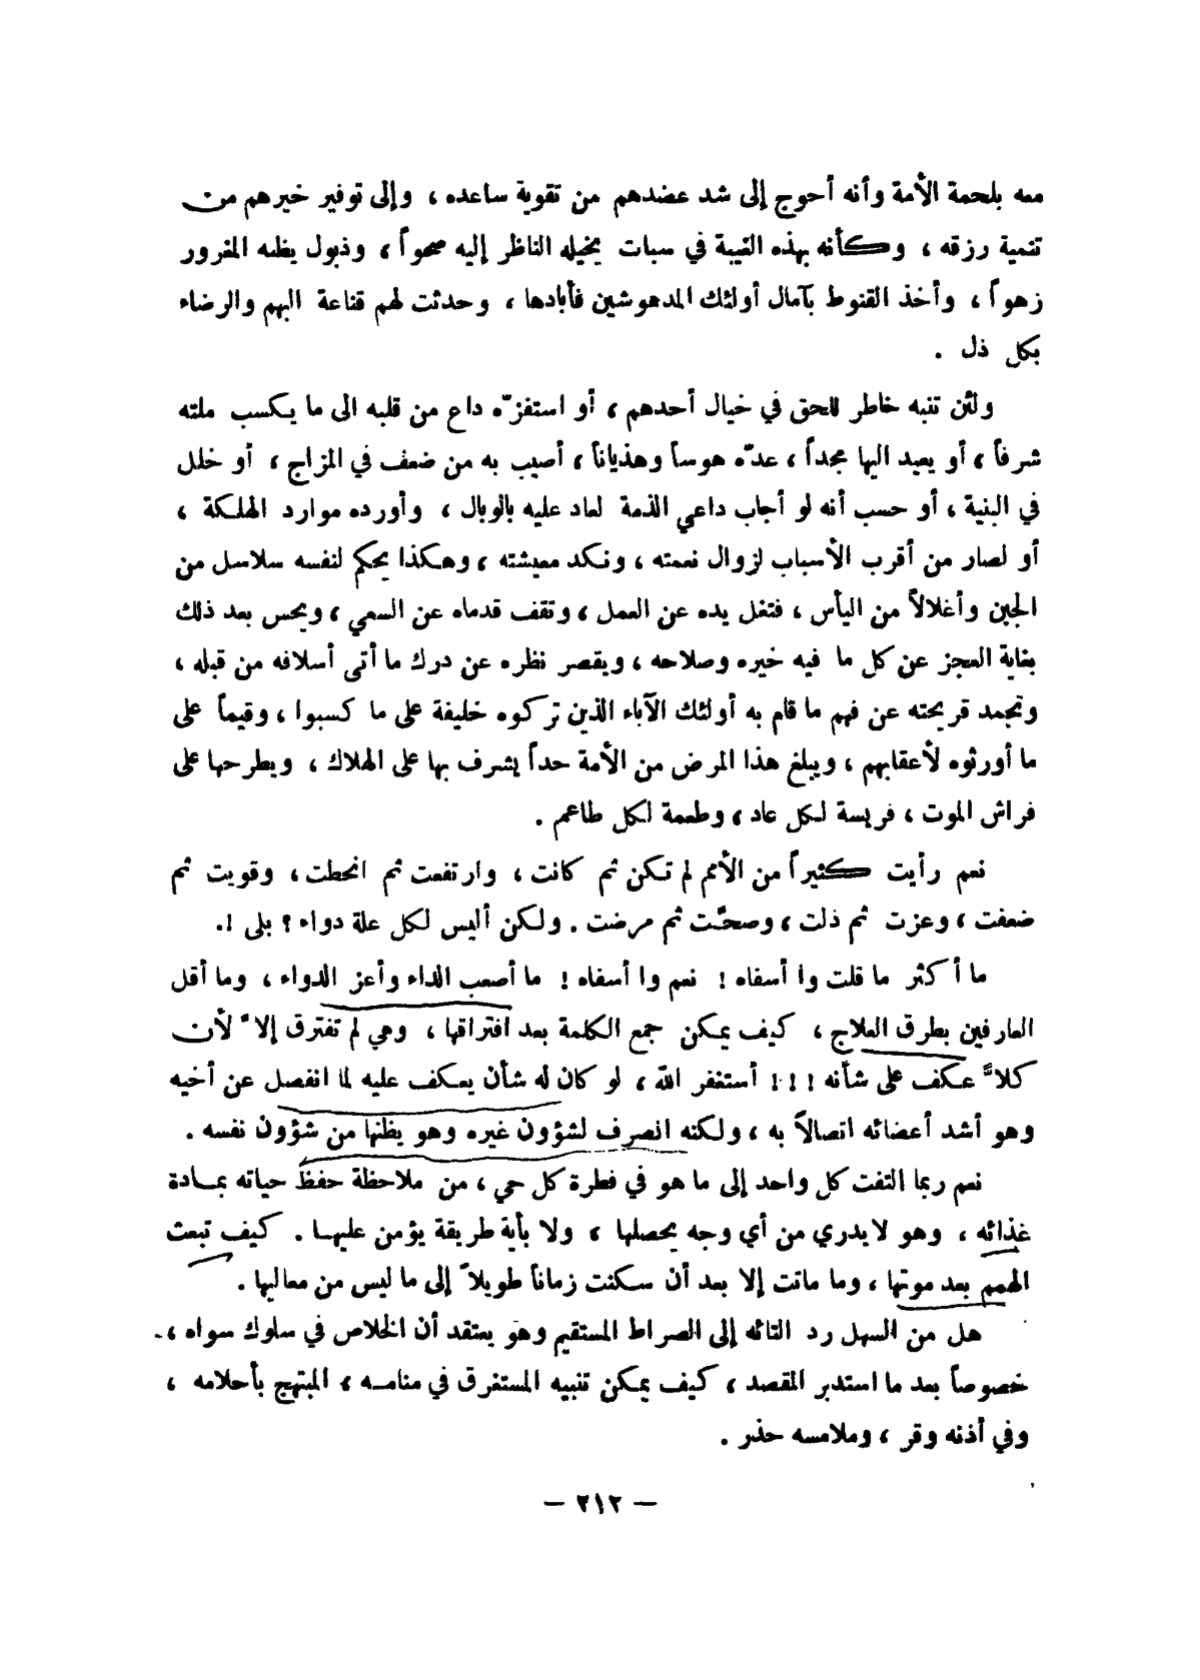 معه بلحمة الأمة وأنه أحوج إلى شد عضدهم من تقوية ساعده ، وإلى توفير خيرهم من
تنمية رزقه ، وكأنه بهذه الغيبة في سبات يخيله الناظر إليه صحواً ، وذبول يظنه المغرور
زهواً ، وأخذ القنوط بآمال أولئك المدهوشين فأبادها ، وحدثت لهم قناعة البهم والرضاء
بكل ذل .
ولئن تنبه خاطر للحق في خيال أحدهم ، أو استفزّه داع من قلبه الى ما يكسب ملته
شرفاً ، أو يعيد اليها مجداً ، عدّه هوساً وهذياناً ، أصيب به من ضعف في المزاج ، أو خلل
في البنية ، أو حسب أنه لو أجاب داعي الذمة لعاد عليه بالوبال ، وأورده موارد الهلكة ،
أو لصار من أقرب الأسباب لزوال نعمته ، ونكد معيشته ، وهكذا يحكم لنفسه سلاسل من
الجبن وأغلالاً من اليأس ، فتغل يده عن العمل ، وتقف قدماه عن السعي ، ويحس بعد ذلك
بغاية العجز عن كل ما فيه خيره وصلاحه ، ويقصر نظره عن درك ما أتى أسلافه من قبله ،
وتجمد قريحته عن فهم ما قام به أولئك الآباء الذين تركوه خليفة على ما كسبوا ، وقيماً على
ما أورثوه لأعقابهم ، ويبلغ هذا المرض من الأمة حداً يشرف بها على الهلاك ، ويطرحها على
فراش الموت ، فريسة لكل عاد ، وطعمة لكل طاعم .
نعم رأيت كثيراً من الأمم لم تكن ثم كانت ، وارتفعت ثم انحطت ، وقويت ثم
ضعفت ، وعزت ثم ذلت ، وصحّت ثم مرضت . ولكن أليس لكل علة دواء ؟ بلى !.
ما أكثر ما قلت وا أسفاه ! نعم وا أسفاه ! ما أصعب الداء وأعز الدواء ، وما أقل
العارفين بطرق العلاج ، كيف يمكن جمع الكلمة بعد افتراقها ، وهي لم تفترق إلاّ لأن
كلاًّ عكف على شأنه ! ! ! أستغفر الله ، لو كان له شأن يعكف عليه لما انفصل عن أخيه
وهو أشد أعضائه اتصالاً به ، ولكنه انصرف لشؤون غيره وهو يظنها من شؤون نفسه .
نعم ربما التفت كل واحد إلى ما هو في فطرة كل حي ، من ملاحظة حفظ حياته بمادة
غذائه ، وهو لا يدري من أي وجه يحصلها ، ولا بأية طريقة يؤمن عليها . كيف تبعث
الهمم بعد موتها ، وما ماتت إلا بعد أن سكنت زماناً طويلاً إلى ما ليس من معاليها .
هل من السهل رد التائه إلى الصراط المستقيم وهو يعتقد أن الخلاص في سلوك سواه ،
خصوصاً بعد ما استدبر المقصد ، كيف يمكن تنبيه المستغرق في منامه ، المبتهج بأحلامه ،
وفي أذنه وقر ، وملامسه حذر .
— ٢١٢ —